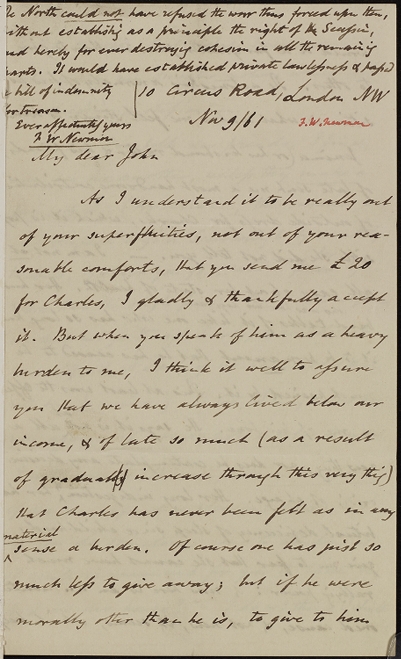 The North could not have refused the war thus forced upon them,
without establishg as a principle the right of Secession,
and hereby for ever destroying cohesion in all the remaining
parts. It would have established private lawlessness & passed
a bill of indemnity
for treason.
Ever affectionately yours
F W Newman
10 Circus Road, London NW
Nov 9/61
F. W. Newman
My dear John
As I understand it to be really out
of your superfluities, not out of your rea-
sonable comforts, that you send me £20
for Charles, I gladly & thankfully accept
it. But when you speak of him as a heavy
burden to me, I think it well to assure
you that we have always lived below our
income, & of late so much (as a result
of gradual increase through this very thing)
that Charles has never been felt as in any
material
sense a burden. Of course one has just so
much less to give away; but if he were
morally other than he is, to give to him